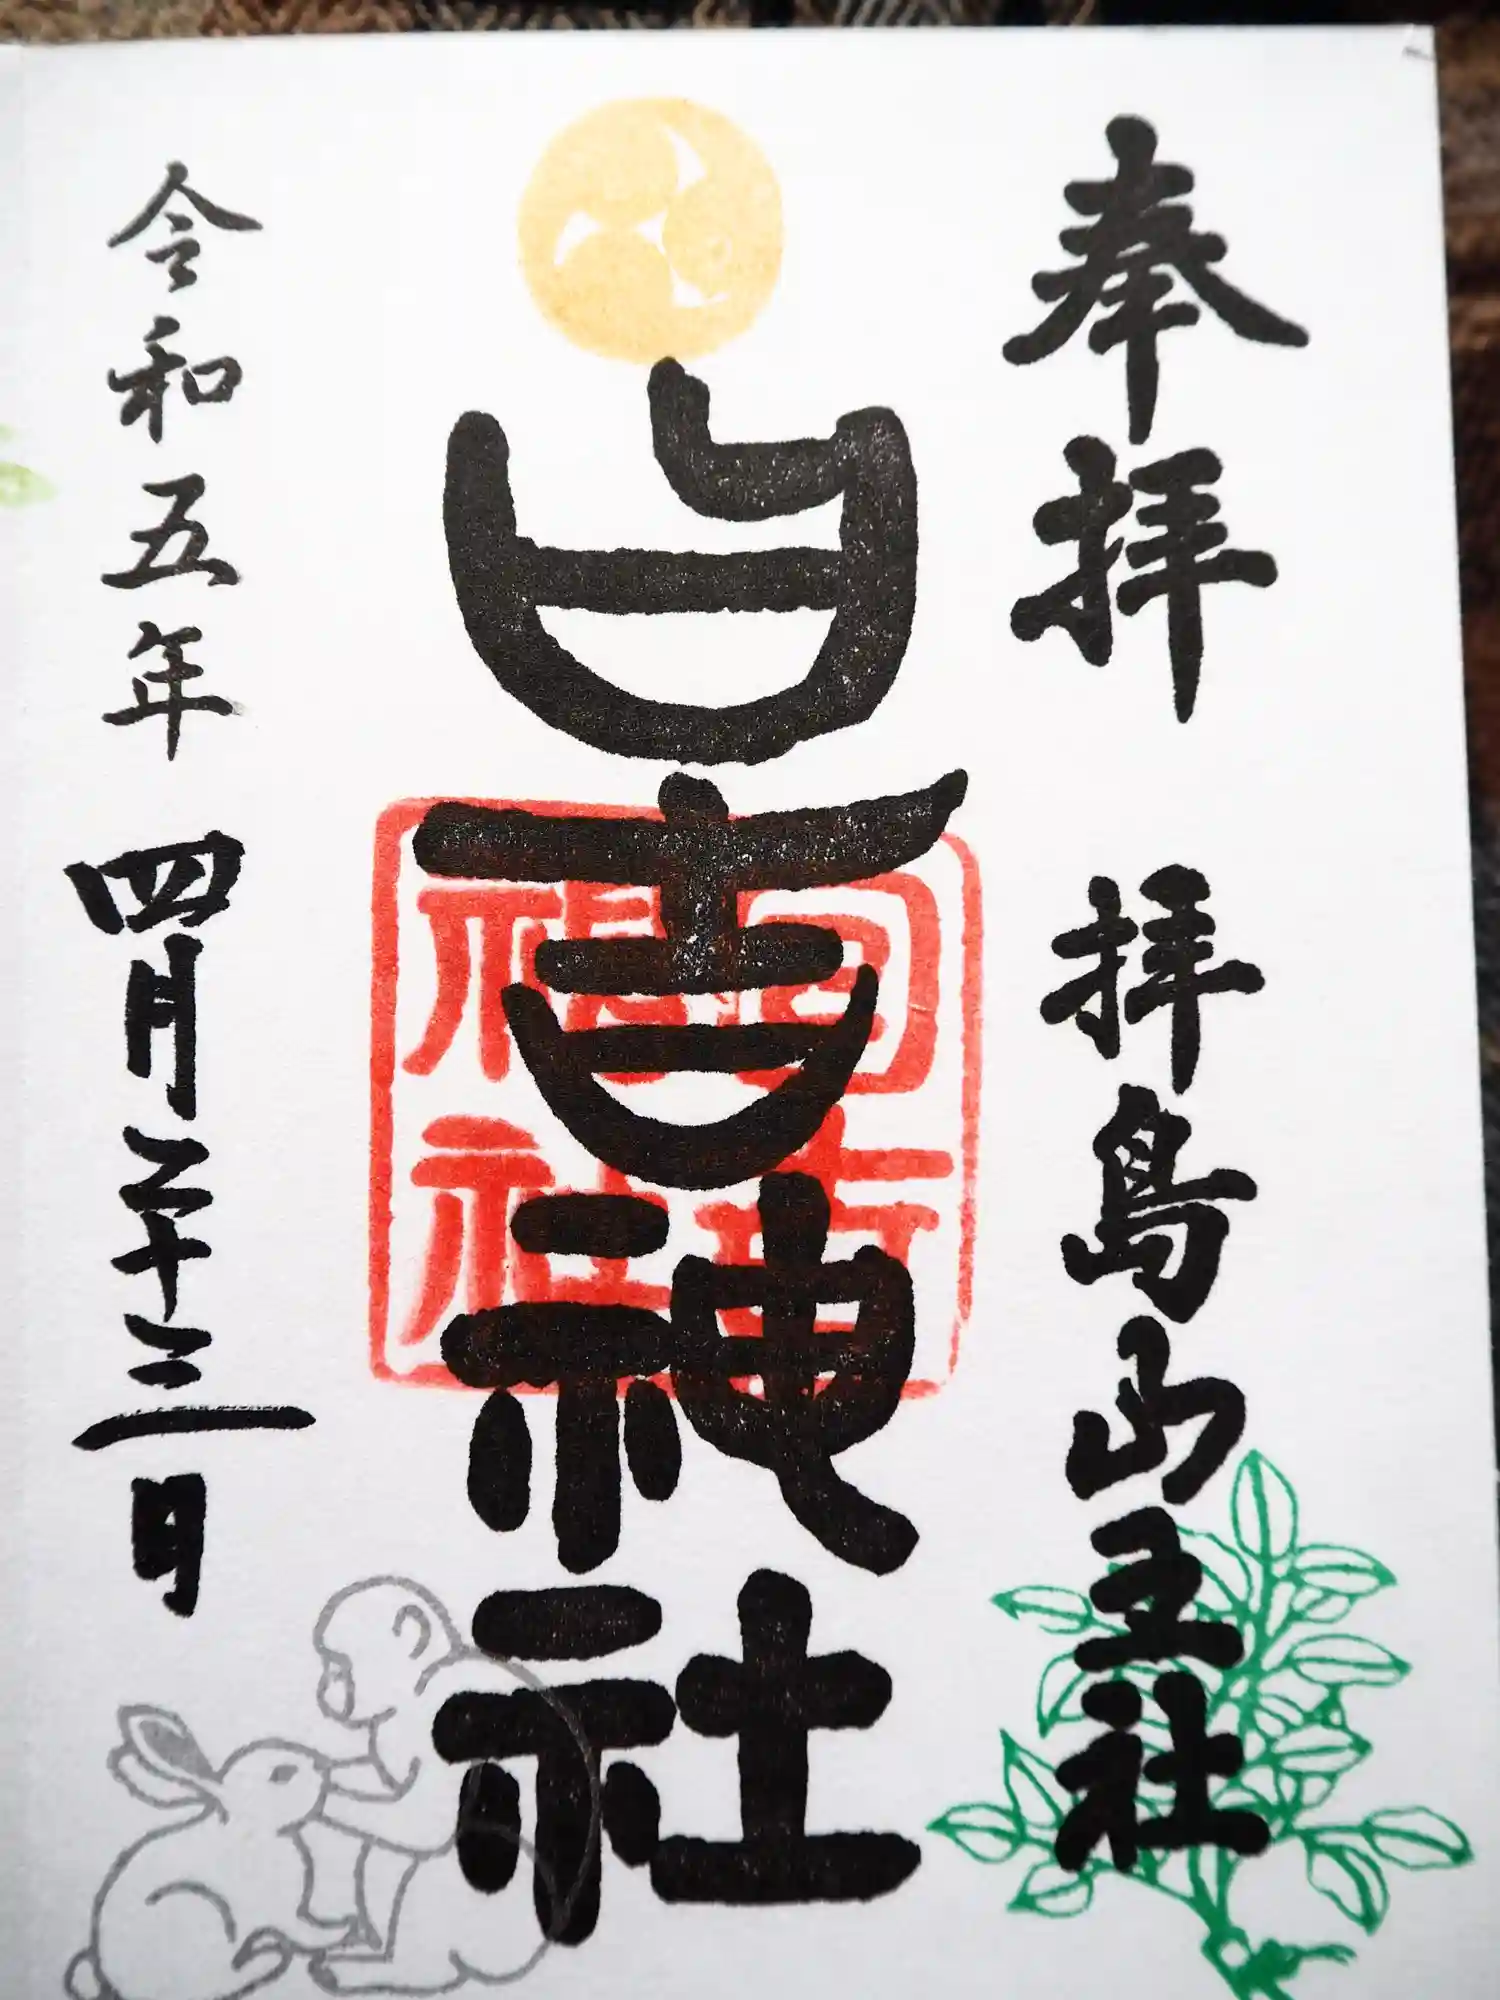 奉拝 拝島山王社
日吉神社
日吉神社
令和五年四月二十三日